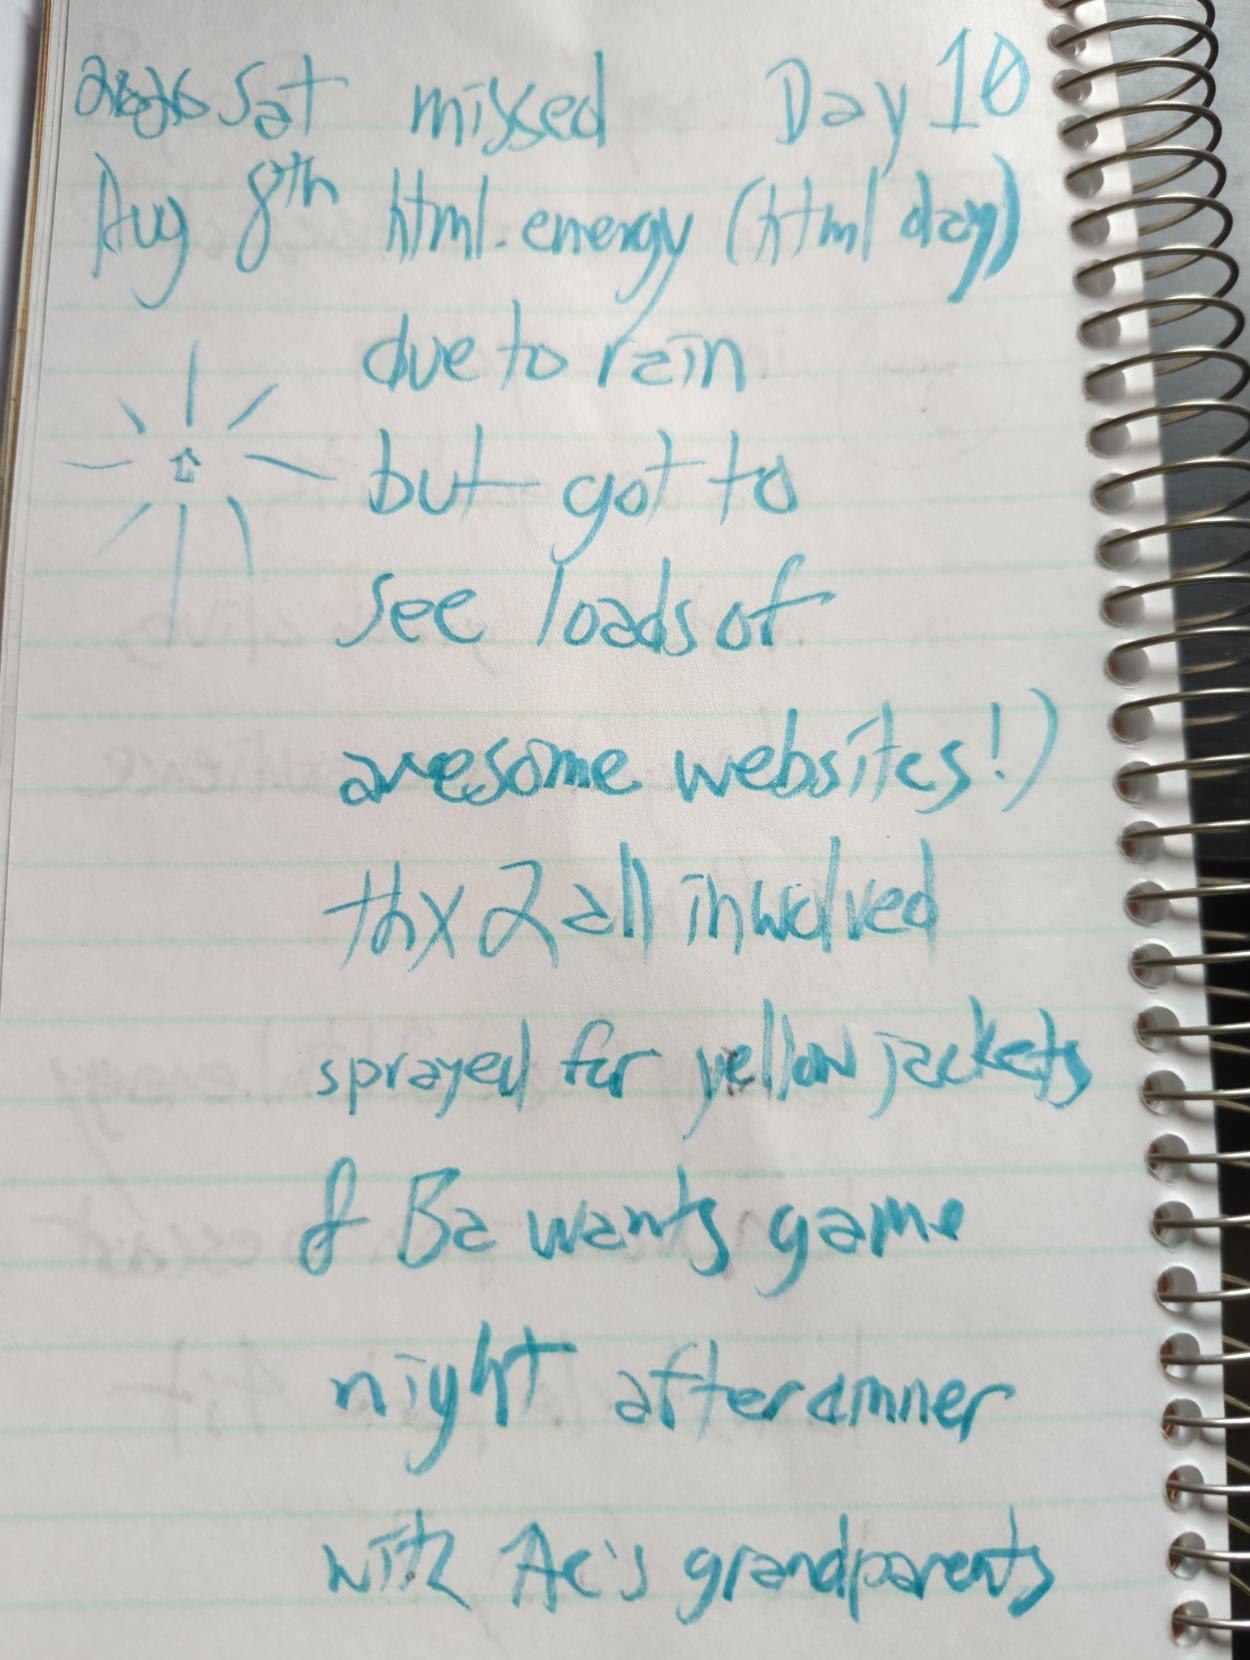 Sat missed Day 10
Aug 8th html.energy (html day)
due to rain
but got to
see loads of
awesome websites!)
thx 2 all involved
sprayed for yellow jackets
& Ba wants game
night after dinner
with Ac's grandparents